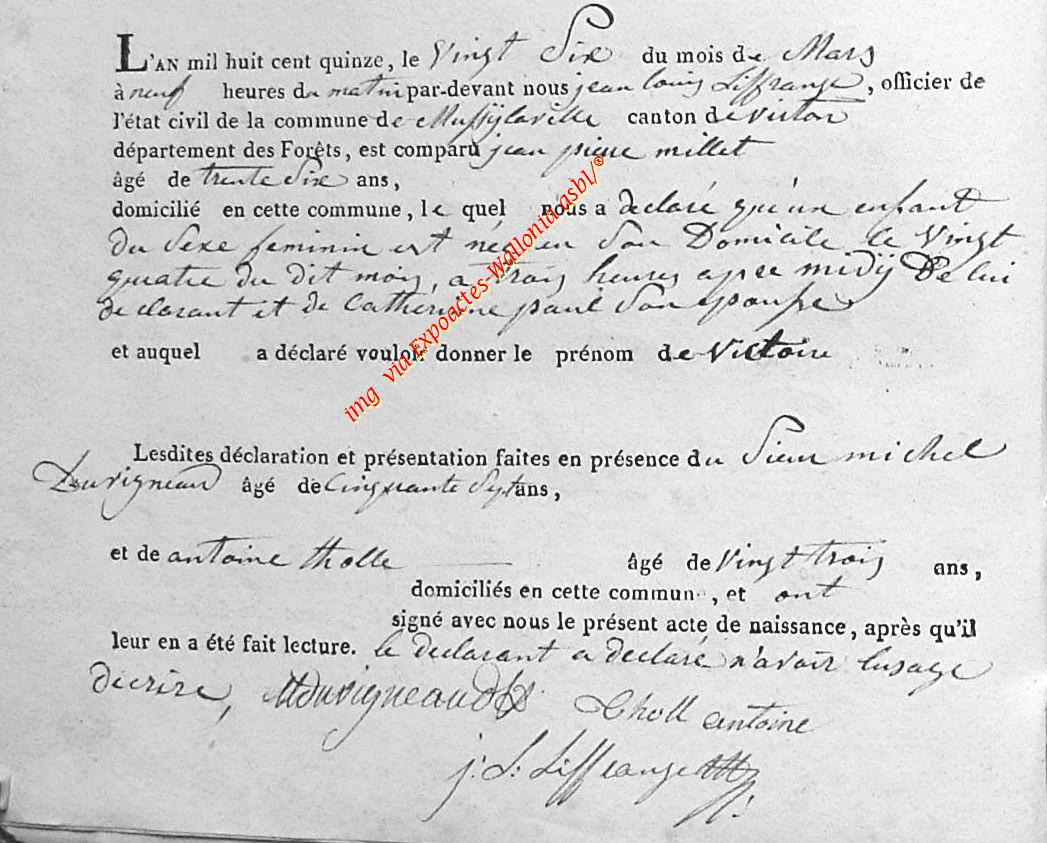 L'AN mil huit cent quinze, le Vingt Six du mois de Mars
à neuf heures du matin par-devant nous jean louis Liffrange, officier de
l'état civil de la commune de Mussÿlaville canton de virton
département des Forêts, est comparu jean pierre millet
âgé de trente Six ans,
domicilié en cette commune, le quel nous a declaré qu'un enfant
du Sexe feminin est née en Son Domicile le Vingt
quatre du dit mois, a trois heures apree midÿ De lui
declarant et de Catherine paul Son epouse
et auquel a déclaré vouloir donner le prénom de Victoire
Lesdites déclaration et présentation faites en présence du Sieur michel
Duvigneaud âgé de Cinquante Sept ans,
et de antoine tholle âgé de Vingt trois ans,
domiciliés en cette commune, et ont
signé avec nous le présent acte de naissance, après qu'il
leur en a été fait lecture. le declarant a declaré n'avoir lusage
decrire, MDuvigneaud Tholl antoine
j: L: Liffrange
img via Expoactes-Wallonia.asbl/®